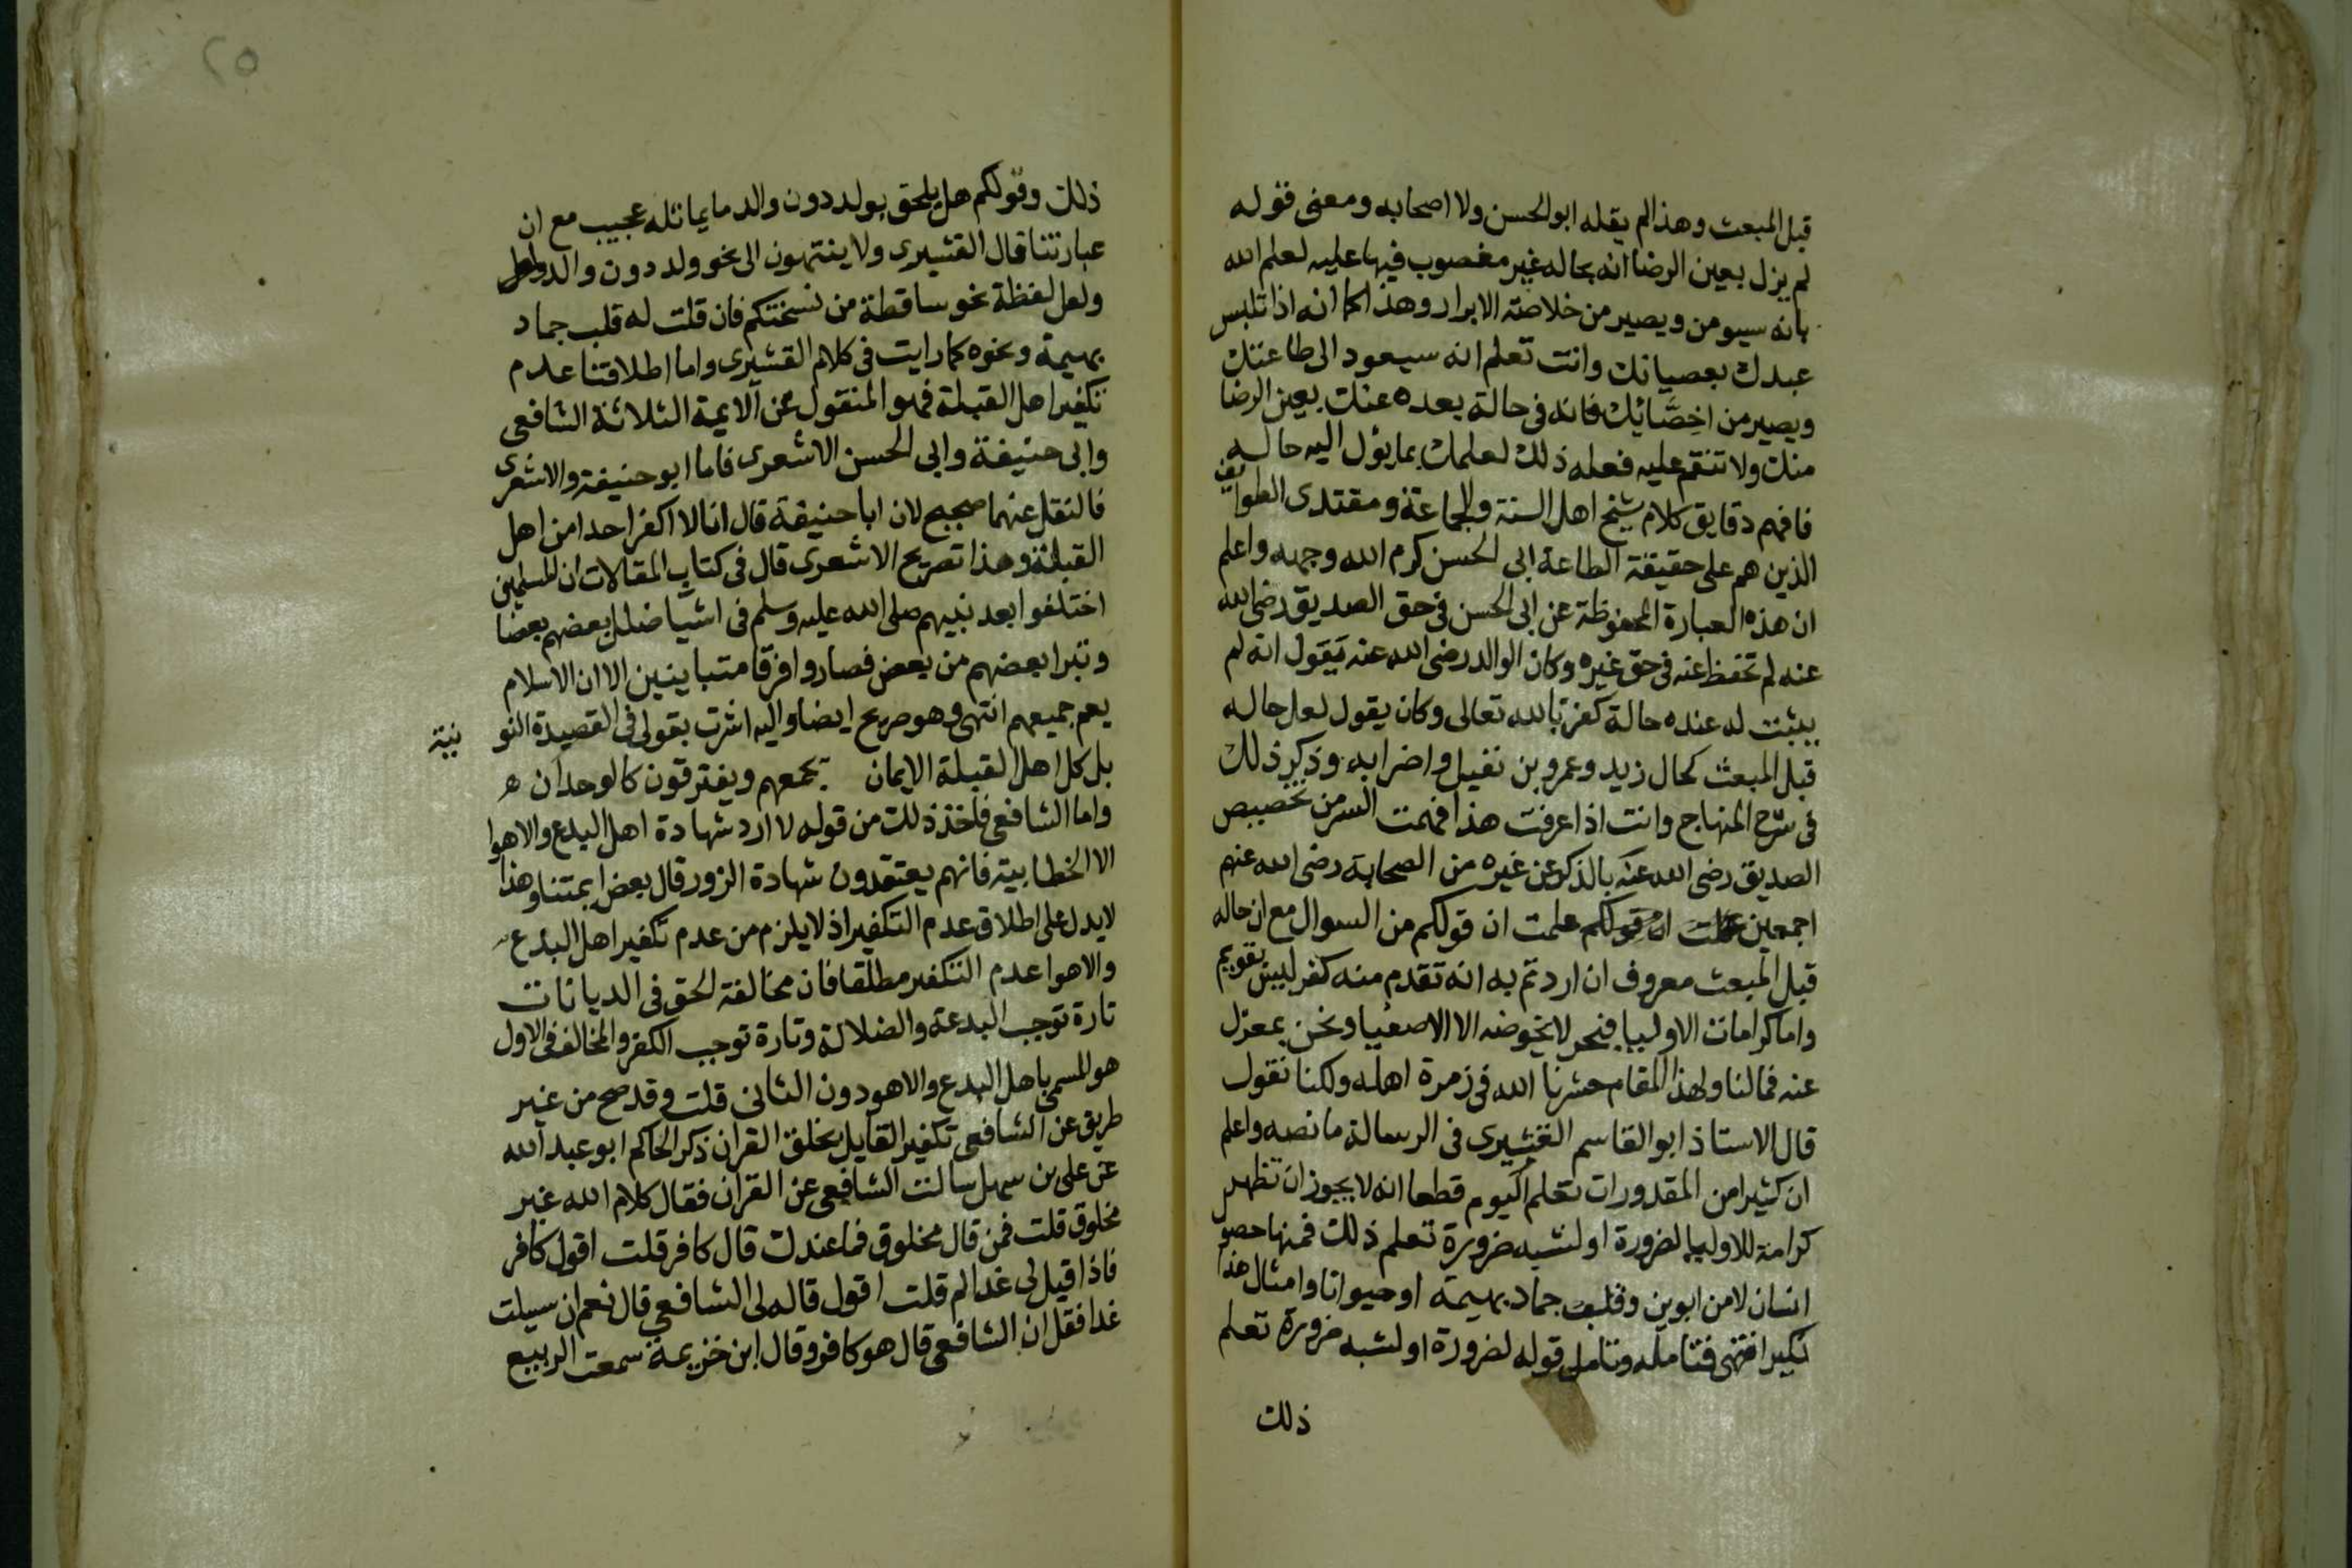 قبل المبعث وهذا لم يقله ابو الحسن ولا اصحابه ومعنى قوله
لم يزل بعين الرضا انه بحاله غير مغضوب فيها عليه لعلم الله
بانه سيومن ويصير من خلاصة الابرار وهذا كما انه اذا تلبس
عبدك بعصيانك وانت تعلم انه سيعود الى طاعتك
ويصير من اخصّائك فانه في حالة بعده عنك بعين الرضا
منك ولا تنقم عليه فعله ذلك لعلمك بما يئول اليه حاله
فافهم دقايق كلام شيخ اهل السنة والجماعة ومقتدى الطوايف
الذين هم على حقيقة الطاعة ابى الحسن كرم الله وجهه واعلم
ان هذه العبارة المحفوظة عن ابى الحسن في حق الصديق رضى الله
عنه لم تحفظ عنه في حق غيره وكان الوالد رضى الله عنه يقول انه لم
يثبت له عنده حالة كفر بالله تعالى وكان يقول لعل حاله
قبل المبعث كحال زيد وعمرو بن نفيل واضرابه وذكر ذلك
في شرح المنهاج وانت اذا عرفت هذا فهمت السر من تخصيص
الصديق رضى الله عنه بالذكر عن غيره من الصحابة رضى الله عنهم
اجمعين علمت ان قولكم علمت ان قولكم من السوال مع ان حاله
قبل المبعث معروف ان اردتم به انه تقدم منه كفر ليس بقويم
واما كرامات الاوليا فبحر لا يخوضه الا الاصفيا ونحن بمعزل
عنه فما لنا ولهذا المقام حشرنا الله في زمرة اهله ولكنا نقول
قال الاستاذ ابو القاسم القشيرى في الرسالة ما نصه واعلم
ان كثيرا من المقدورات تعلم اليوم قطعا انه لا يجوز ان تظهر
كرامة للاوليا لضرورة او لشبه ضرورة تعلم ذلك فمنها حصول
انسان لا من ابوين وقلب جماد بهيمة او حيوانا وامثال هذا
تكثر انتهى فتامله وتامل قوله لضرورة او لشبه ضرورة تعلم
ذلك
٢٥
ذلك وقولكم هل يلحق بولد دون والد ما يماثله عجيب مع ان
عبارتنا قال القشيرى ولا ينتهون الى نحو ولد دون والد
ولعل لفظة نحو ساقطة من نسختكم فان قلت له قلب جماد
بهيمة ونحوه كما رايت في كلام القشيرى واما اطلاقنا عدم
تكفير اهل القبلة فهو المنقول عن الايمة الثلاثة الشافعى
وابى حنيفة وابى الحسن الاشعرى فاما ابو حنيفة والاشعرى
فالنقل عنهما صحيح لان ابا حنيفة قال انا لا اكفر احدا من اهل
القبلة وهذا تصريح الاشعرى قال في كتاب المقالات ان المسلمين
اختلفوا بعد نبيهم صلى الله عليه وسلم في اشيا ضلل بعضهم بعضا
وتبرا بعضهم من بعض فصاروا فرقا متباينين الا ان الاسلام
يعم جميعهم انتهى وهو صريح ايضا واليه اشرت بقولى في القصيدة النو نية
بل كل اهل القبلة الايمان يجمعهم ويفترقون كالوحدان ه
واما الشافعى فاخذ ذلك من قوله لا ارد شهادة اهل البدع والاهوا
الا الخطابية فانهم يعتقدون شهادة الزور قال بعض ايمتنا وهذا
لا يدل على اطلاق عدم التكفير اذ لا يلزم من عدم تكفير اهل البدع
والاهوا عدم التكفير مطلقا فان مخالفة الحق في الديانات
تارة توجب البدعة والضلالة وتارة توجب الكفر والمخالف في الاول
هو المسمى باهل البدع والاهو دون الثانى قلت وقد صح من غير
طريق عن الشافعى تكفير القايل بخلق القران ذكر الحاكم ابو عبد الله
عن على بن سهل سالت الشافعى عن القران فقال كلام الله غير
مخلوق قلت فمن قال مخلوق فما عندك قال كافر قلت اقول كافر
فاذا قيل لى غدا لم قلت اقول قاله لى الشافعى قال نعم ان سيلت
غدا فقل ان الشافعى قال هو كافر وقال ابن خزيمة سمعت الربيع